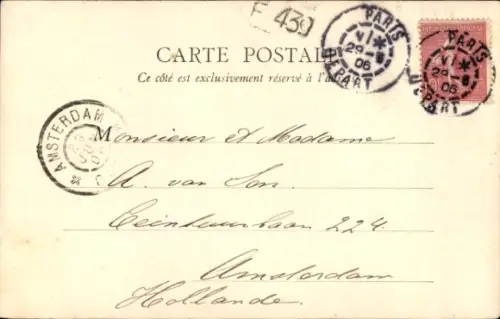 439
PARIS
VI *
29-6
06
DEPART
PARIS
VI *
29-6
06
DEPART
CARTE POSTALE
Ce côté est exclusivement réservé à l'a
AMSTERDAM
Monsieur et Madame
A. van Son.
Ceintuurbaan 224
Amsterdam
Hollande.